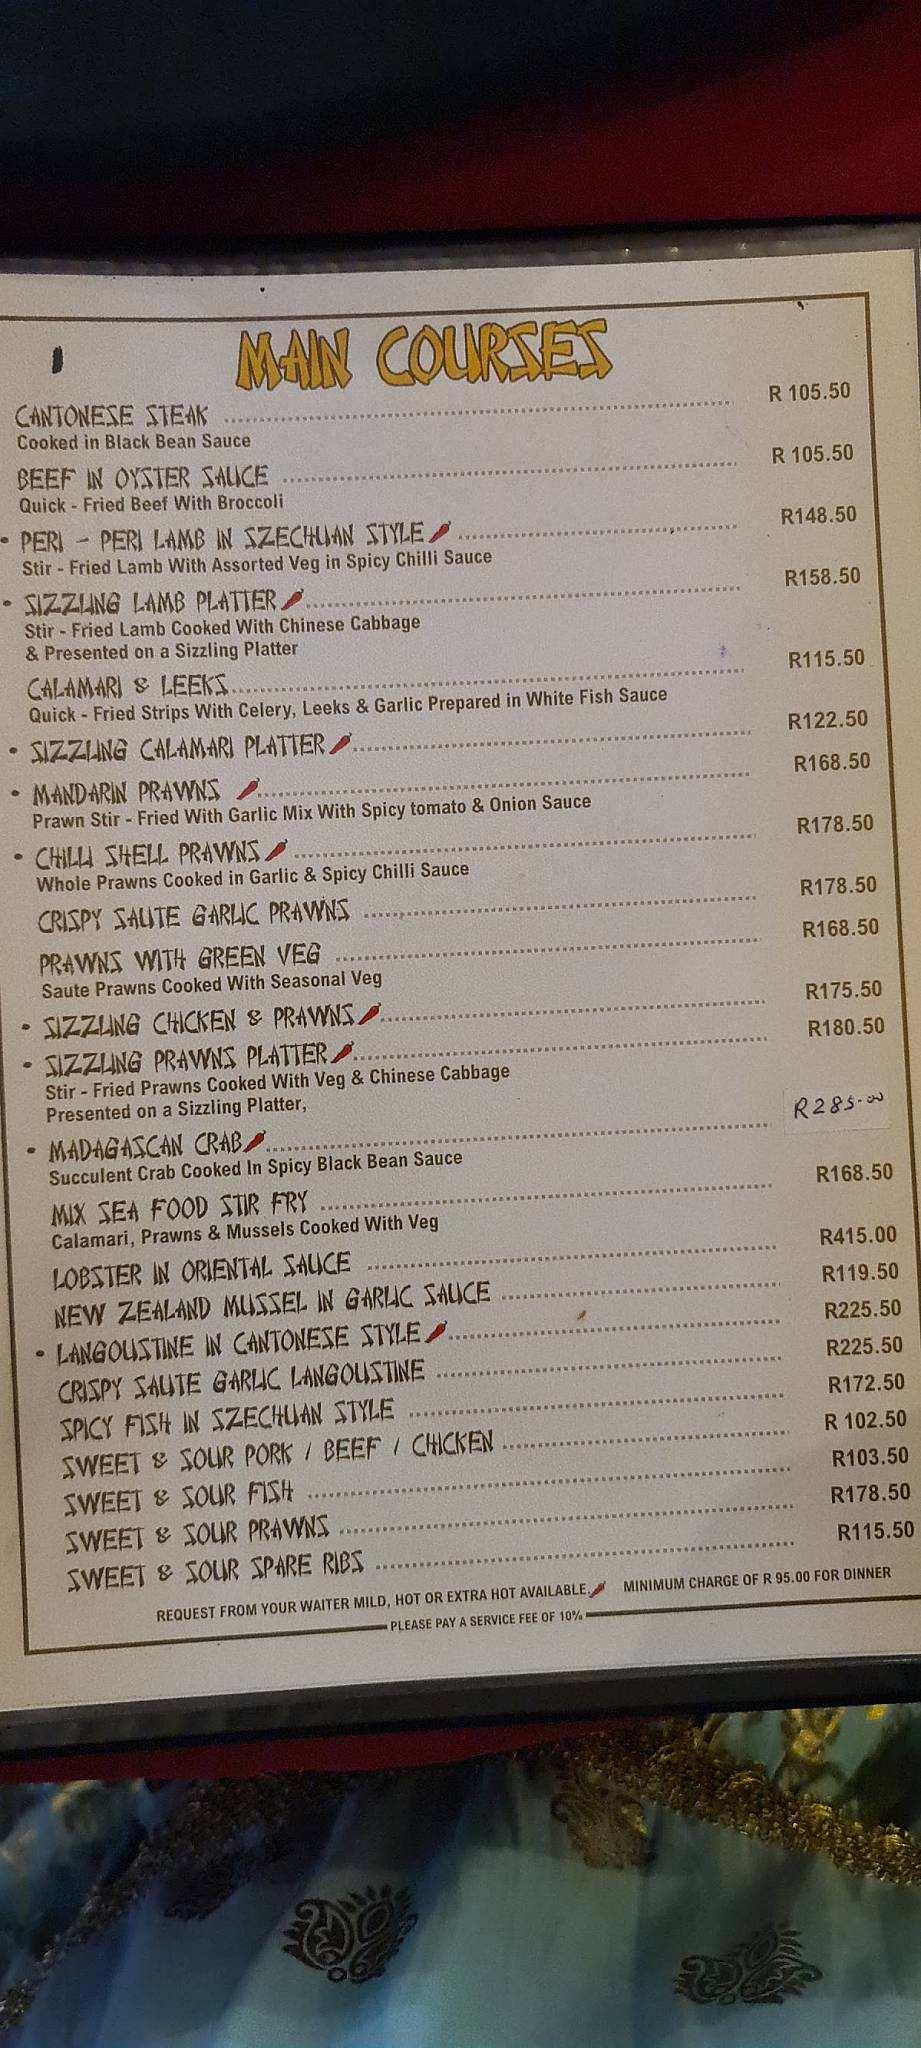 MAIN COURSES
CANTONESE STEAK R 105.50
Cooked in Black Bean Sauce
BEEF IN OYSTER SAUCE R 105.50
Quick - Fried Beef With Broccoli
• PERI - PERI LAMB IN SZECHUAN STYLE R148.50
Stir - Fried Lamb With Assorted Veg in Spicy Chilli Sauce
• SIZZLING LAMB PLATTER R158.50
Stir - Fried Lamb Cooked With Chinese Cabbage
& Presented on a Sizzling Platter
CALAMARI & LEEKS R115.50
Quick - Fried Strips With Celery, Leeks & Garlic Prepared in White Fish Sauce
• SIZZLING CALAMARI PLATTER R122.50
• MANDARIN PRAWNS R168.50
Prawn Stir - Fried With Garlic Mix With Spicy tomato & Onion Sauce
• CHILLI SHELL PRAWNS R178.50
Whole Prawns Cooked in Garlic & Spicy Chilli Sauce
CRISPY SAUTE GARLIC PRAWNS R178.50
PRAWNS WITH GREEN VEG R168.50
Saute Prawns Cooked With Seasonal Veg
• SIZZLING CHICKEN & PRAWNS R175.50
• SIZZLING PRAWNS PLATTER R180.50
Stir - Fried Prawns Cooked With Veg & Chinese Cabbage
Presented on a Sizzling Platter,
• MADAGASCAN CRAB R285-00
Succulent Crab Cooked In Spicy Black Bean Sauce
MIX SEA FOOD STIR FRY R168.50
Calamari, Prawns & Mussels Cooked With Veg
LOBSTER IN ORIENTAL SAUCE R415.00
NEW ZEALAND MUSSEL IN GARLIC SAUCE R119.50
• LANGOUSTINE IN CANTONESE STYLE R225.50
CRISPY SAUTE GARLIC LANGOUSTINE R225.50
SPICY FISH IN SZECHUAN STYLE R172.50
SWEET & SOUR PORK / BEEF / CHICKEN R 102.50
SWEET & SOUR FISH R103.50
SWEET & SOUR PRAWNS R178.50
SWEET & SOUR SPARE RIBS R115.50
REQUEST FROM YOUR WAITER MILD, HOT OR EXTRA HOT AVAILABLE. MINIMUM CHARGE OF R 95.00 FOR DINNER
PLEASE PAY A SERVICE FEE OF 10%